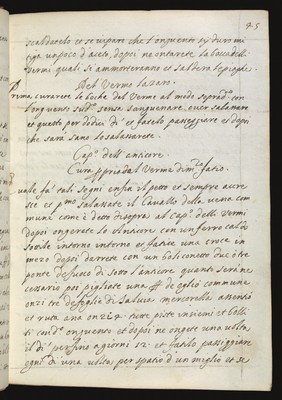 45
scaldatelo et se vi pare che l'onguento sij duro mi
un poco d'aceto, dopoi ne ontarete la bocca delli
Vermi quali si ammorteranno et saldera le piaghe.
Del Vermo lazaro.
Prima curarete le boche del Vermo al modo sopradᵒ con
l'onguento sudᵒ senza sanguenare, over salassare
et questo per dodici dì et fatelo passeggiare et dopoi
che sarà sano lo salassarete.
Capᵒ dell'anticore.
Cura ppria dal Verme dimᵗᵒ fatio.
fa tal segni enfia il petto et sempre acre
sce et pᵐᵒ salassate il Cavallo della vena com
mune come è detto disopra al capᵒ delli Vermi
dopoi ongerete lo Anticore con un ferro caldo
sottile intorno intorno et fatice una croce in
mezo dopoi darete con un boticonetto due o tre
ponte de fuoco di sotto l'anticore quanto serà ne
cessario poi pigliate una # de oglio commune
onzi tre de foglie di Salvia mercorella absentio
et ruta ana onzi 4 tutte piste insiemi et bolli
ti cusì onguento et dopoi ne ongete una volta
il dì per fino a giorni 12 et fatilo passiggiare
ogni dì una volta per spatio d'un miglio et se